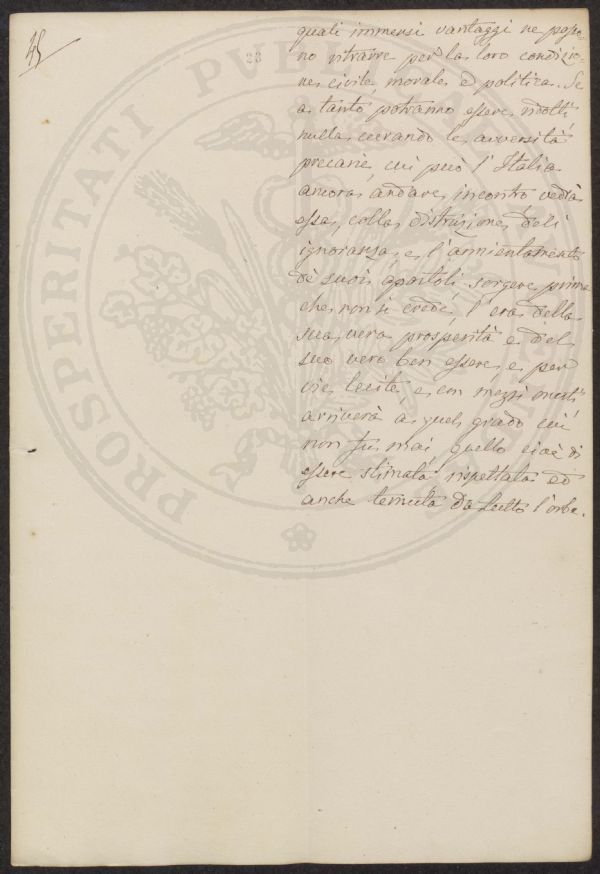 45
23
quali immensi vantaggi ne posso-
no ritrarre per la loro condizio-
ne civile, morale e politica. Se
a tanto potranno essere indotti,
nulla curando le avversità
precarie, cui può l'Italia
ancora andare incontro vedrà
essa, colla distruzione dell'
ignoranza, e l'annientamento
de' suoi apostoli sorgere prima
che non si crede, l'era della
sua vera prosperità e del
suo vero ben essere, e per
vie lecite, e con mezzi onesti
arriverà a quel grado cui
non fu mai, quello cioè di
essere stimata rispettata ed
anche temuta da tutto l'orbe.
PROSPERITATI PVBL